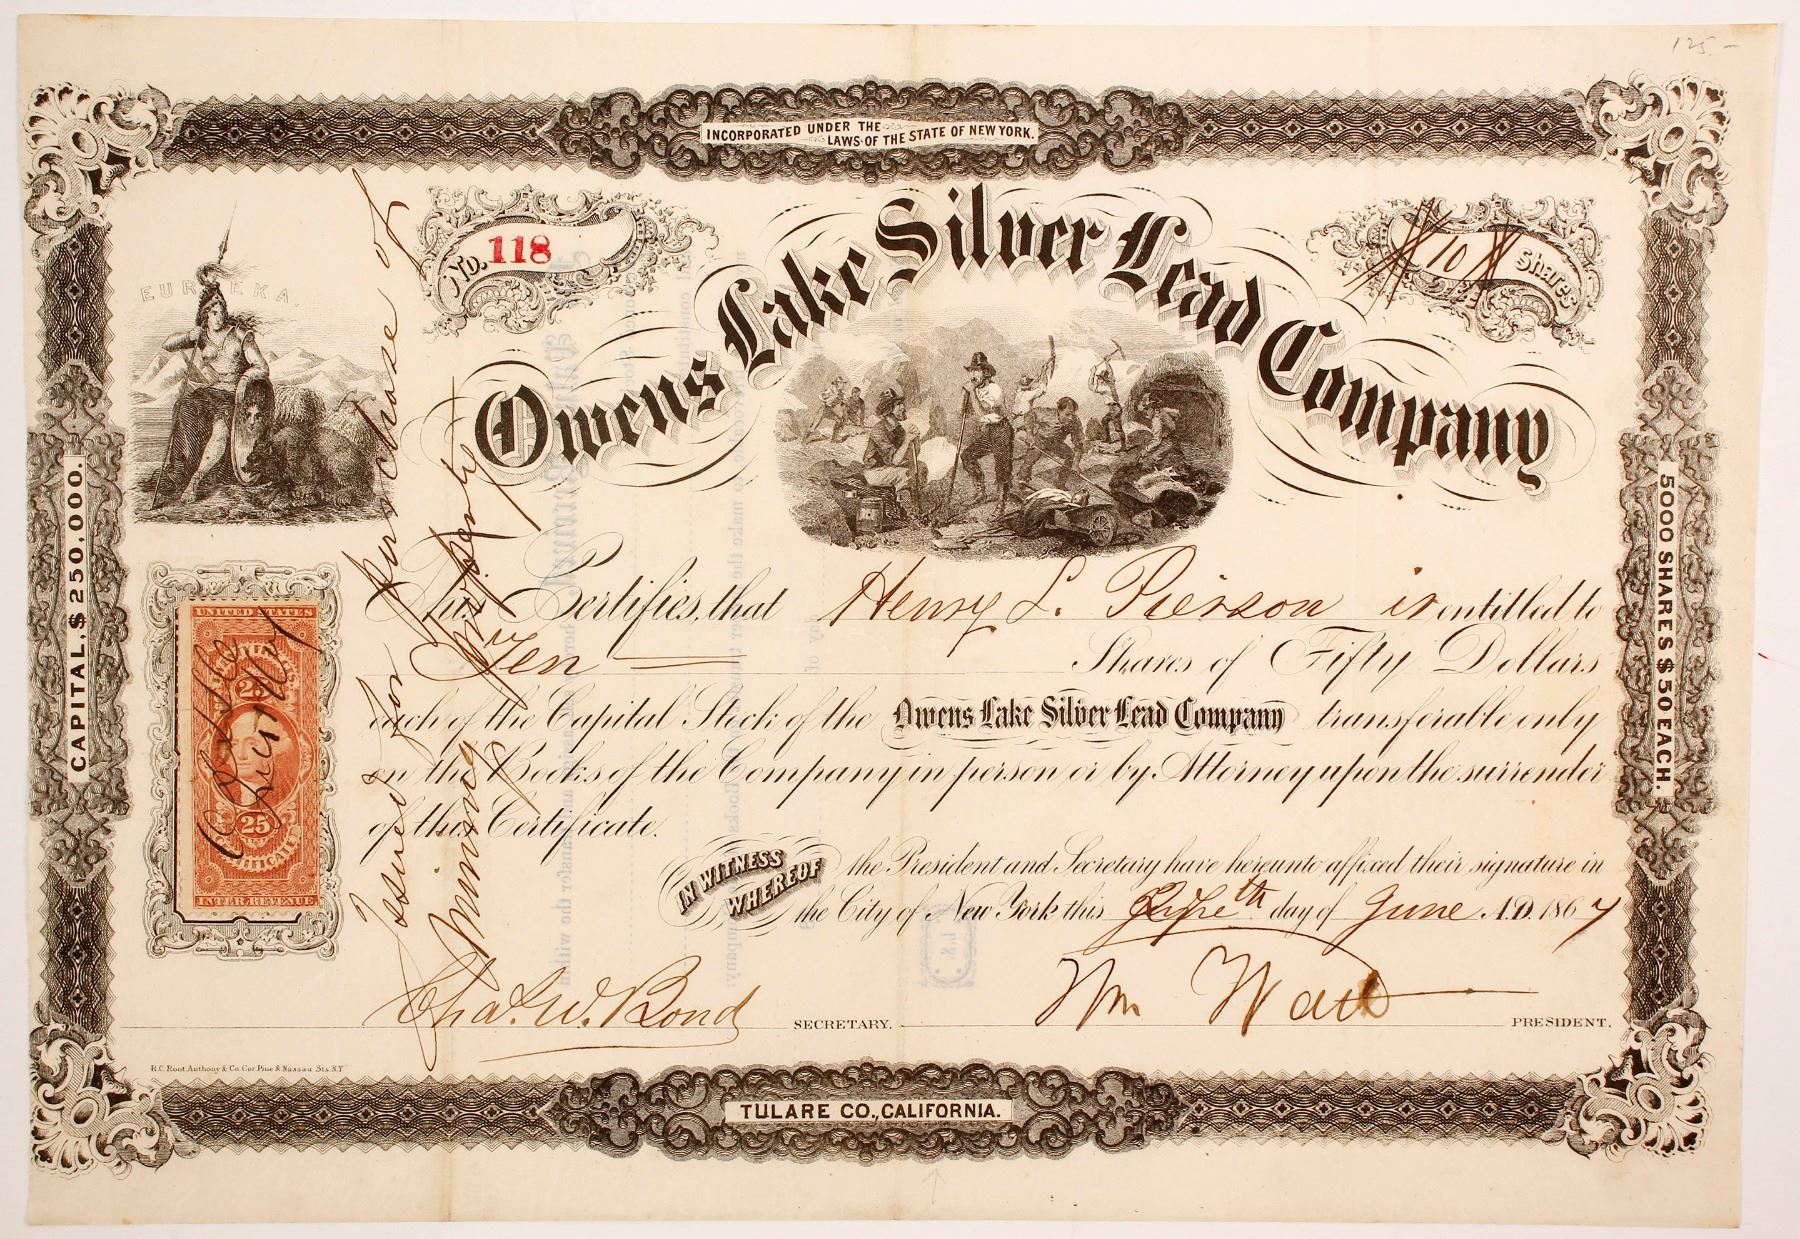 125.-
INCORPORATED UNDER THE
LAWS OF THE STATE OF NEW YORK.
EUREKA.
No. 118
# 10 # Shares
Owens Lake Silver Lead Company
CAPITAL, $250,000.
5000 SHARES $50 EACH.
Issued for purchase of
Mining property
This Certifies, that Henry L. Pierson is entitled to
Ten Shares of Fifty Dollars
each of the Capital Stock of the Owens Lake Silver Lead Company transferable only
on the Books of the Company in person or by Attorney upon the surrender
of this Certificate.
IN WITNESS
WHEREOF
the President and Secretary have hereunto affixed their signature in
the City of New York this day of June A.D. 1867
UNITED STATES
25
25
CERTIFICATE
INTER. REVENUE
Chas. W. Bond SECRETARY.
Wm PRESIDENT.
H.C. Root, Anthony & Co. Cor. Pine & Nassau Sts. N.Y.
TULARE CO., CALIFORNIA.